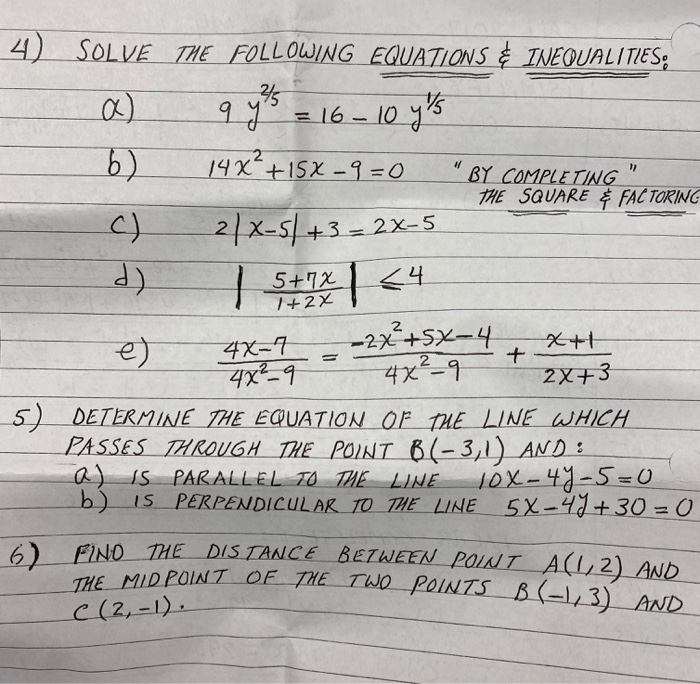 4) SOLVE THE FOLLOWING EQUATIONS & INEQUALITIES:
a) 9 y^{2/5} = 16 - 10 y^{1/5}
b) 14x² + 15x - 9 = 0 "BY COMPLETING"
THE SQUARE & FACTORING
c) 2|x-5| + 3 = 2x-5
d) | (5+7x)/(1+2x) | ≤ 4
e) (4x-7)/(4x²-9) = (-2x²+5x-4)/(4x²-9) + (x+1)/(2x+3)
5) DETERMINE THE EQUATION OF THE LINE WHICH
PASSES THROUGH THE POINT B(-3,1) AND:
a) IS PARALLEL TO THE LINE 10x-4y-5=0
b) IS PERPENDICULAR TO THE LINE 5x-4y+30=0
6) FIND THE DISTANCE BETWEEN POINT A(1,2) AND
THE MIDPOINT OF THE TWO POINTS B(-1,3) AND
C(2,-1).